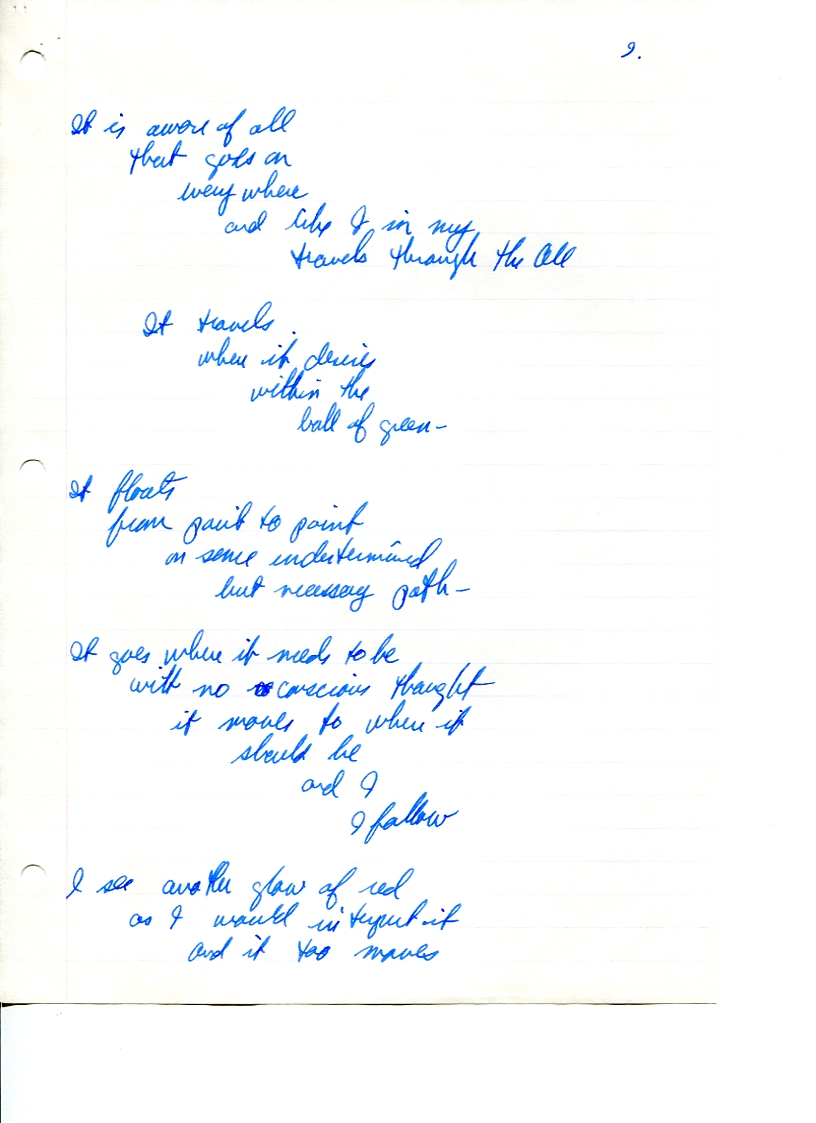 9.
It is aware of all
that goes on
every where
and like I in my
travels through the All
It travels
when it desires
within the
ball of green-
It floats
from point to point
on some undetermined
but necessary path-
It goes where it needs to be
with no conscious thought
it moves to where it
should be
and I
I follow
I see another glow of red
as I would interput it
and it too moves